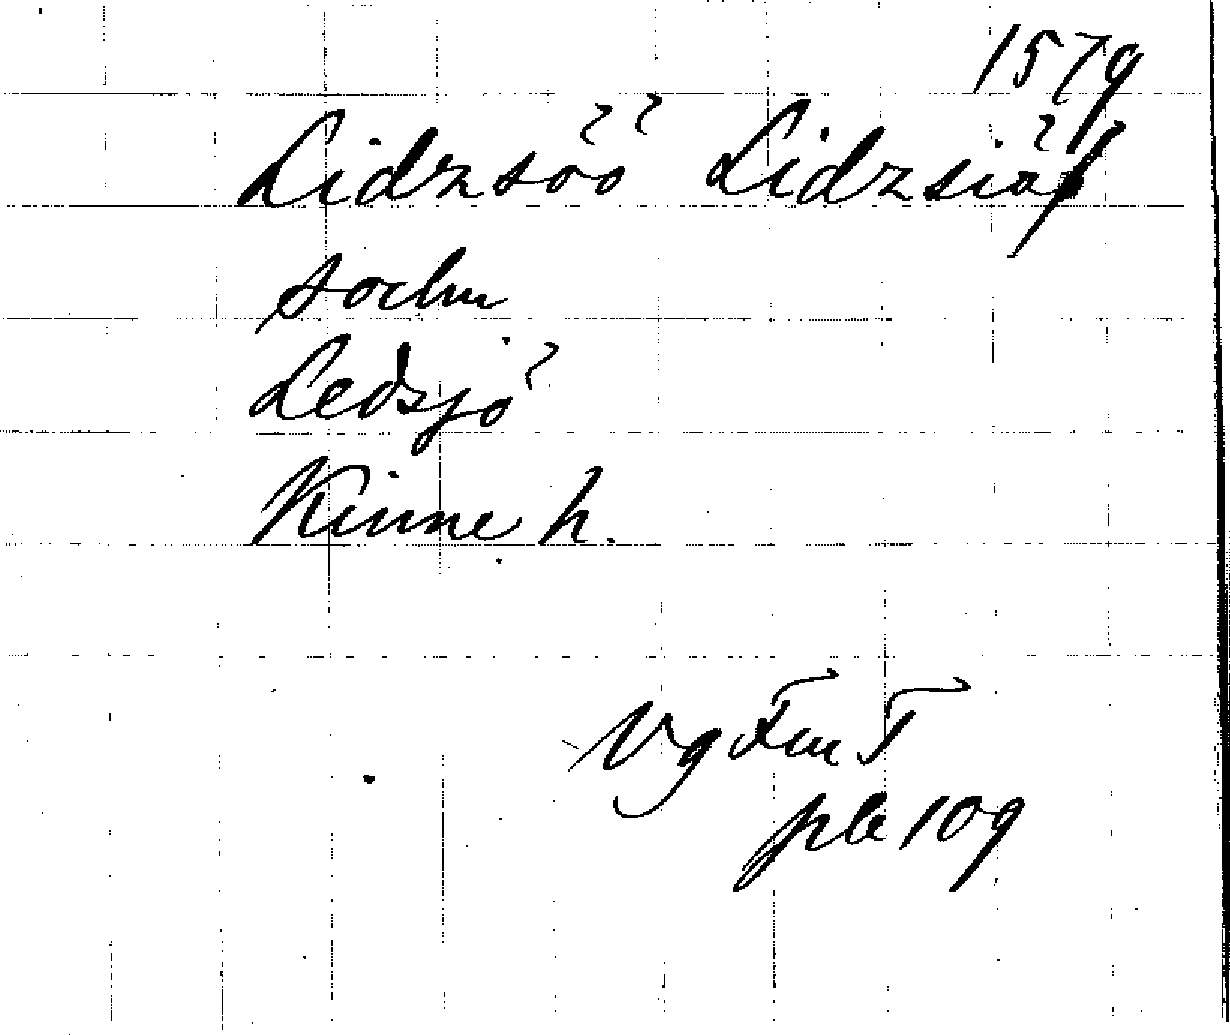 1579
Lidzsöö Lidzsiö
sochn
Ledsjö
Kinne h.
Vg FmT
pla 109